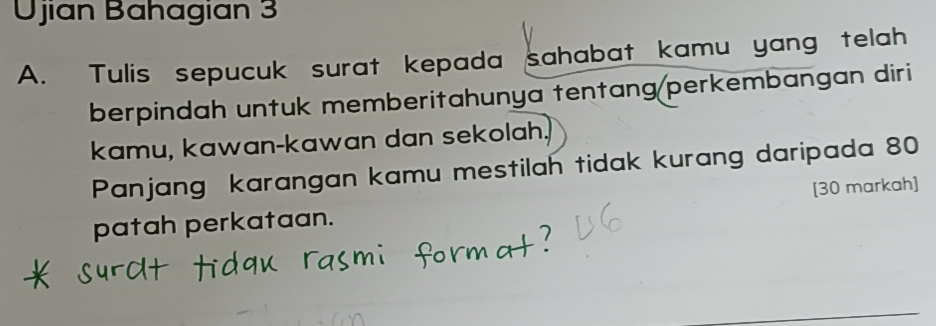 Ujian Bahagian 3
A. Tulis sepucuk surat kepada sahabat kamu yang telah
berpindah untuk memberitahunya tentang perkembangan diri
kamu, kawan-kawan dan sekolah.
Panjang karangan kamu mestilah tidak kurang daripada 80
patah perkataan.
[30 markah]
* surat tidak rasmi format?